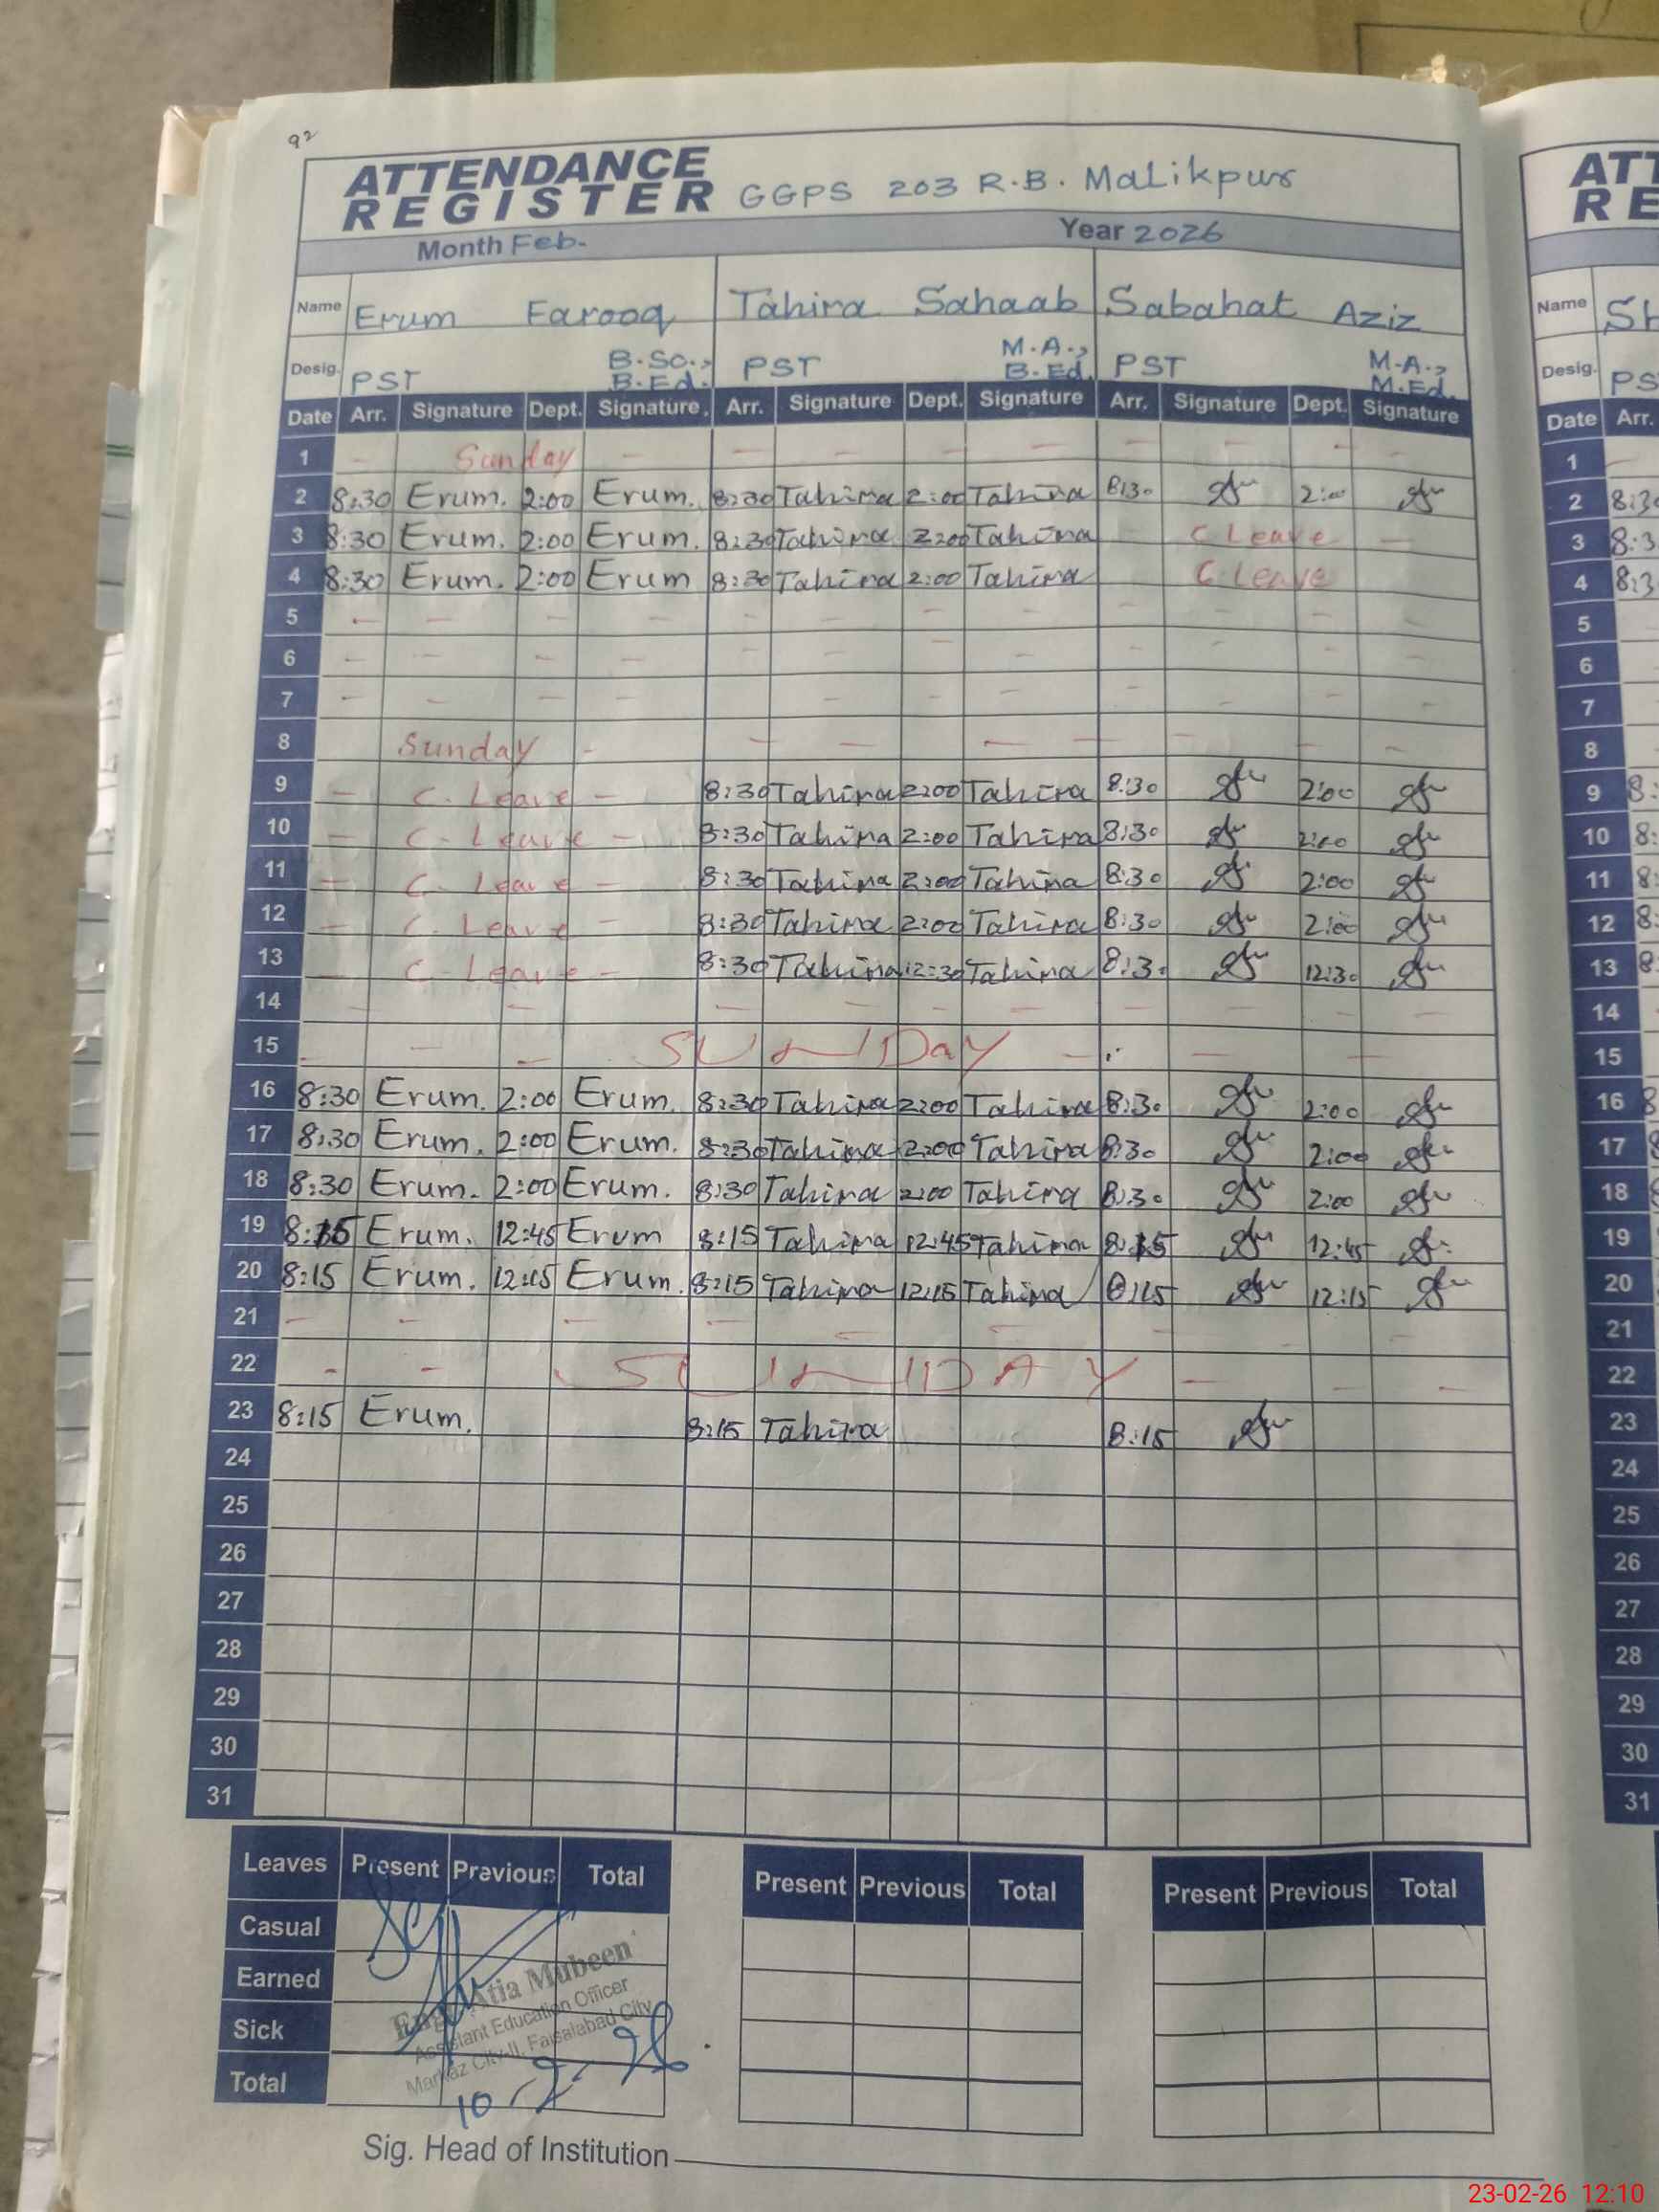 92
ATTENDANCE REGISTER GGPS 203 R.B. Malikpur
Month Feb. Year 2026
Name Erum Farooq Tahira Sahaab Sabahat Aziz
Desig. PST B.Sc., B.Ed. PST M.A., B.Ed. PST M.A., M.Ed.
Date Arr. Signature Dept. Signature Arr. Signature Dept. Signature Arr. Signature Dept. Signature
1 - Sunday - - - - - - - - -
2 8:30 Erum. 2:00 Erum. 8:30 Tahira 2:00 Tahira 8:30 2:00
3 8:30 Erum. 2:00 Erum. 8:30 Tahira 2:00 Tahira - C Leave -
4 8:30 Erum. 2:00 Erum 8:30 Tahira 2:00 Tahira C. Leave
5 - - - - - - - - - - - -
6 - - - - - - - - - - - -
7 - - - - - - - - - - - -
8 Sunday - - - - - - - -
9 - C. Leave - 8:30 Tahira 2:00 Tahira 8:30 2:00
10 - C. Leave - 8:30 Tahira 2:00 Tahira 8:30 2:00
11 - C. Leave - 8:30 Tahira 2:00 Tahira 8:30 2:00
12 - C. Leave - 8:30 Tahira 2:00 Tahira 8:30 2:00
13 - C. Leave - 8:30 Tahira 12:30 Tahira 8:30 12:30
14 - - - - - - - - - -
15 - - - SUNDay - - -
16 8:30 Erum. 2:00 Erum. 8:30 Tahira 2:00 Tahira 8:30 2:00
17 8:30 Erum. 2:00 Erum. 8:30 Tahira 2:00 Tahira 8:30 2:00
18 8:30 Erum. 2:00 Erum. 8:30 Tahira 2:00 Tahira 8:30 2:00
19 8:15 Erum. 12:45 Erum 8:15 Tahira 12:45 Tahira 8:15 12:45
20 8:15 Erum. 12:15 Erum. 8:15 Tahira 12:15 Tahira 8:15 12:15
21 - - - - - - - - -
22 - - - SUNDAY - - -
23 8:15 Erum. 8:15 Tahira 8:15
24
25
26
27
28
29
30
31
Leaves Present Previous Total Present Previous Total Present Previous Total
Casual
Earned
Sick
Total
Atia Mubeen
Assistant Education Officer
Markaz City-II, Faisalabad City
10-2-26
Sig. Head of Institution
ATT
RE
Name Sh
Desig. PS
Date Arr.
1
2 8:30
3 8:3
4 8:3
5
6
7
8
9 8:
10 8:
11 8
12 8:
13 8
14
15
16 8
17 8
18
19
20
21
22
23
24
25
26
27
28
29
30
31
23-02-26 12:10